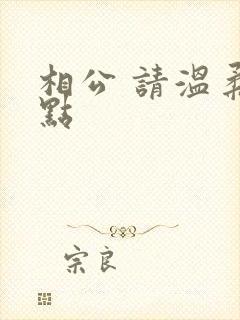 相公 請溫柔
點
宗良